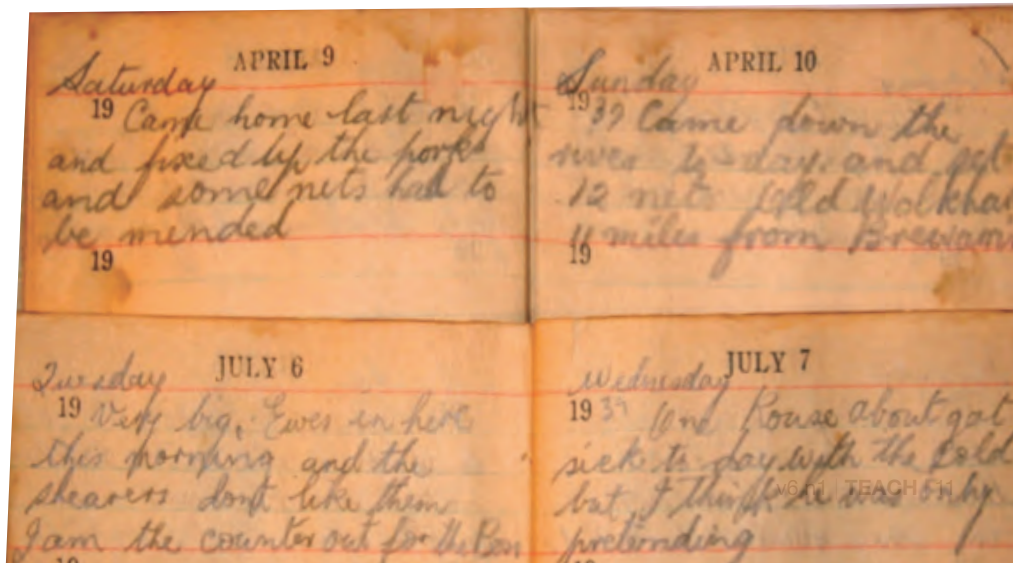 APRIL 9
Saturday
19 Came home last night
and fixed up the
and some nets had to
be mended
19
APRIL 10
Sunday
19 37 Came down the
river to day and got
12 nets Old
11 miles from Brewarri
19
JULY 6
Tuesday
19 Very big, Ewes in here
this morning and the
shearers dont like them
I am the counter out for the Bon
19
JULY 7
Wednesday
19 37 One Rouse about got
sick to day with the Cold
but I think he was only
v6.n1 | TEACH • 11
pretending